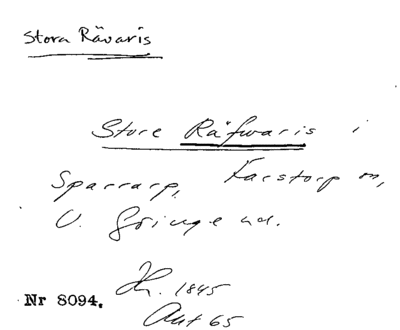 Stora Rävaris
Store Räfwaris i
Sparrarp, Farstorp sn,
V. Göinge hd.
Nr 8094. Hr. 1845
Ant 65